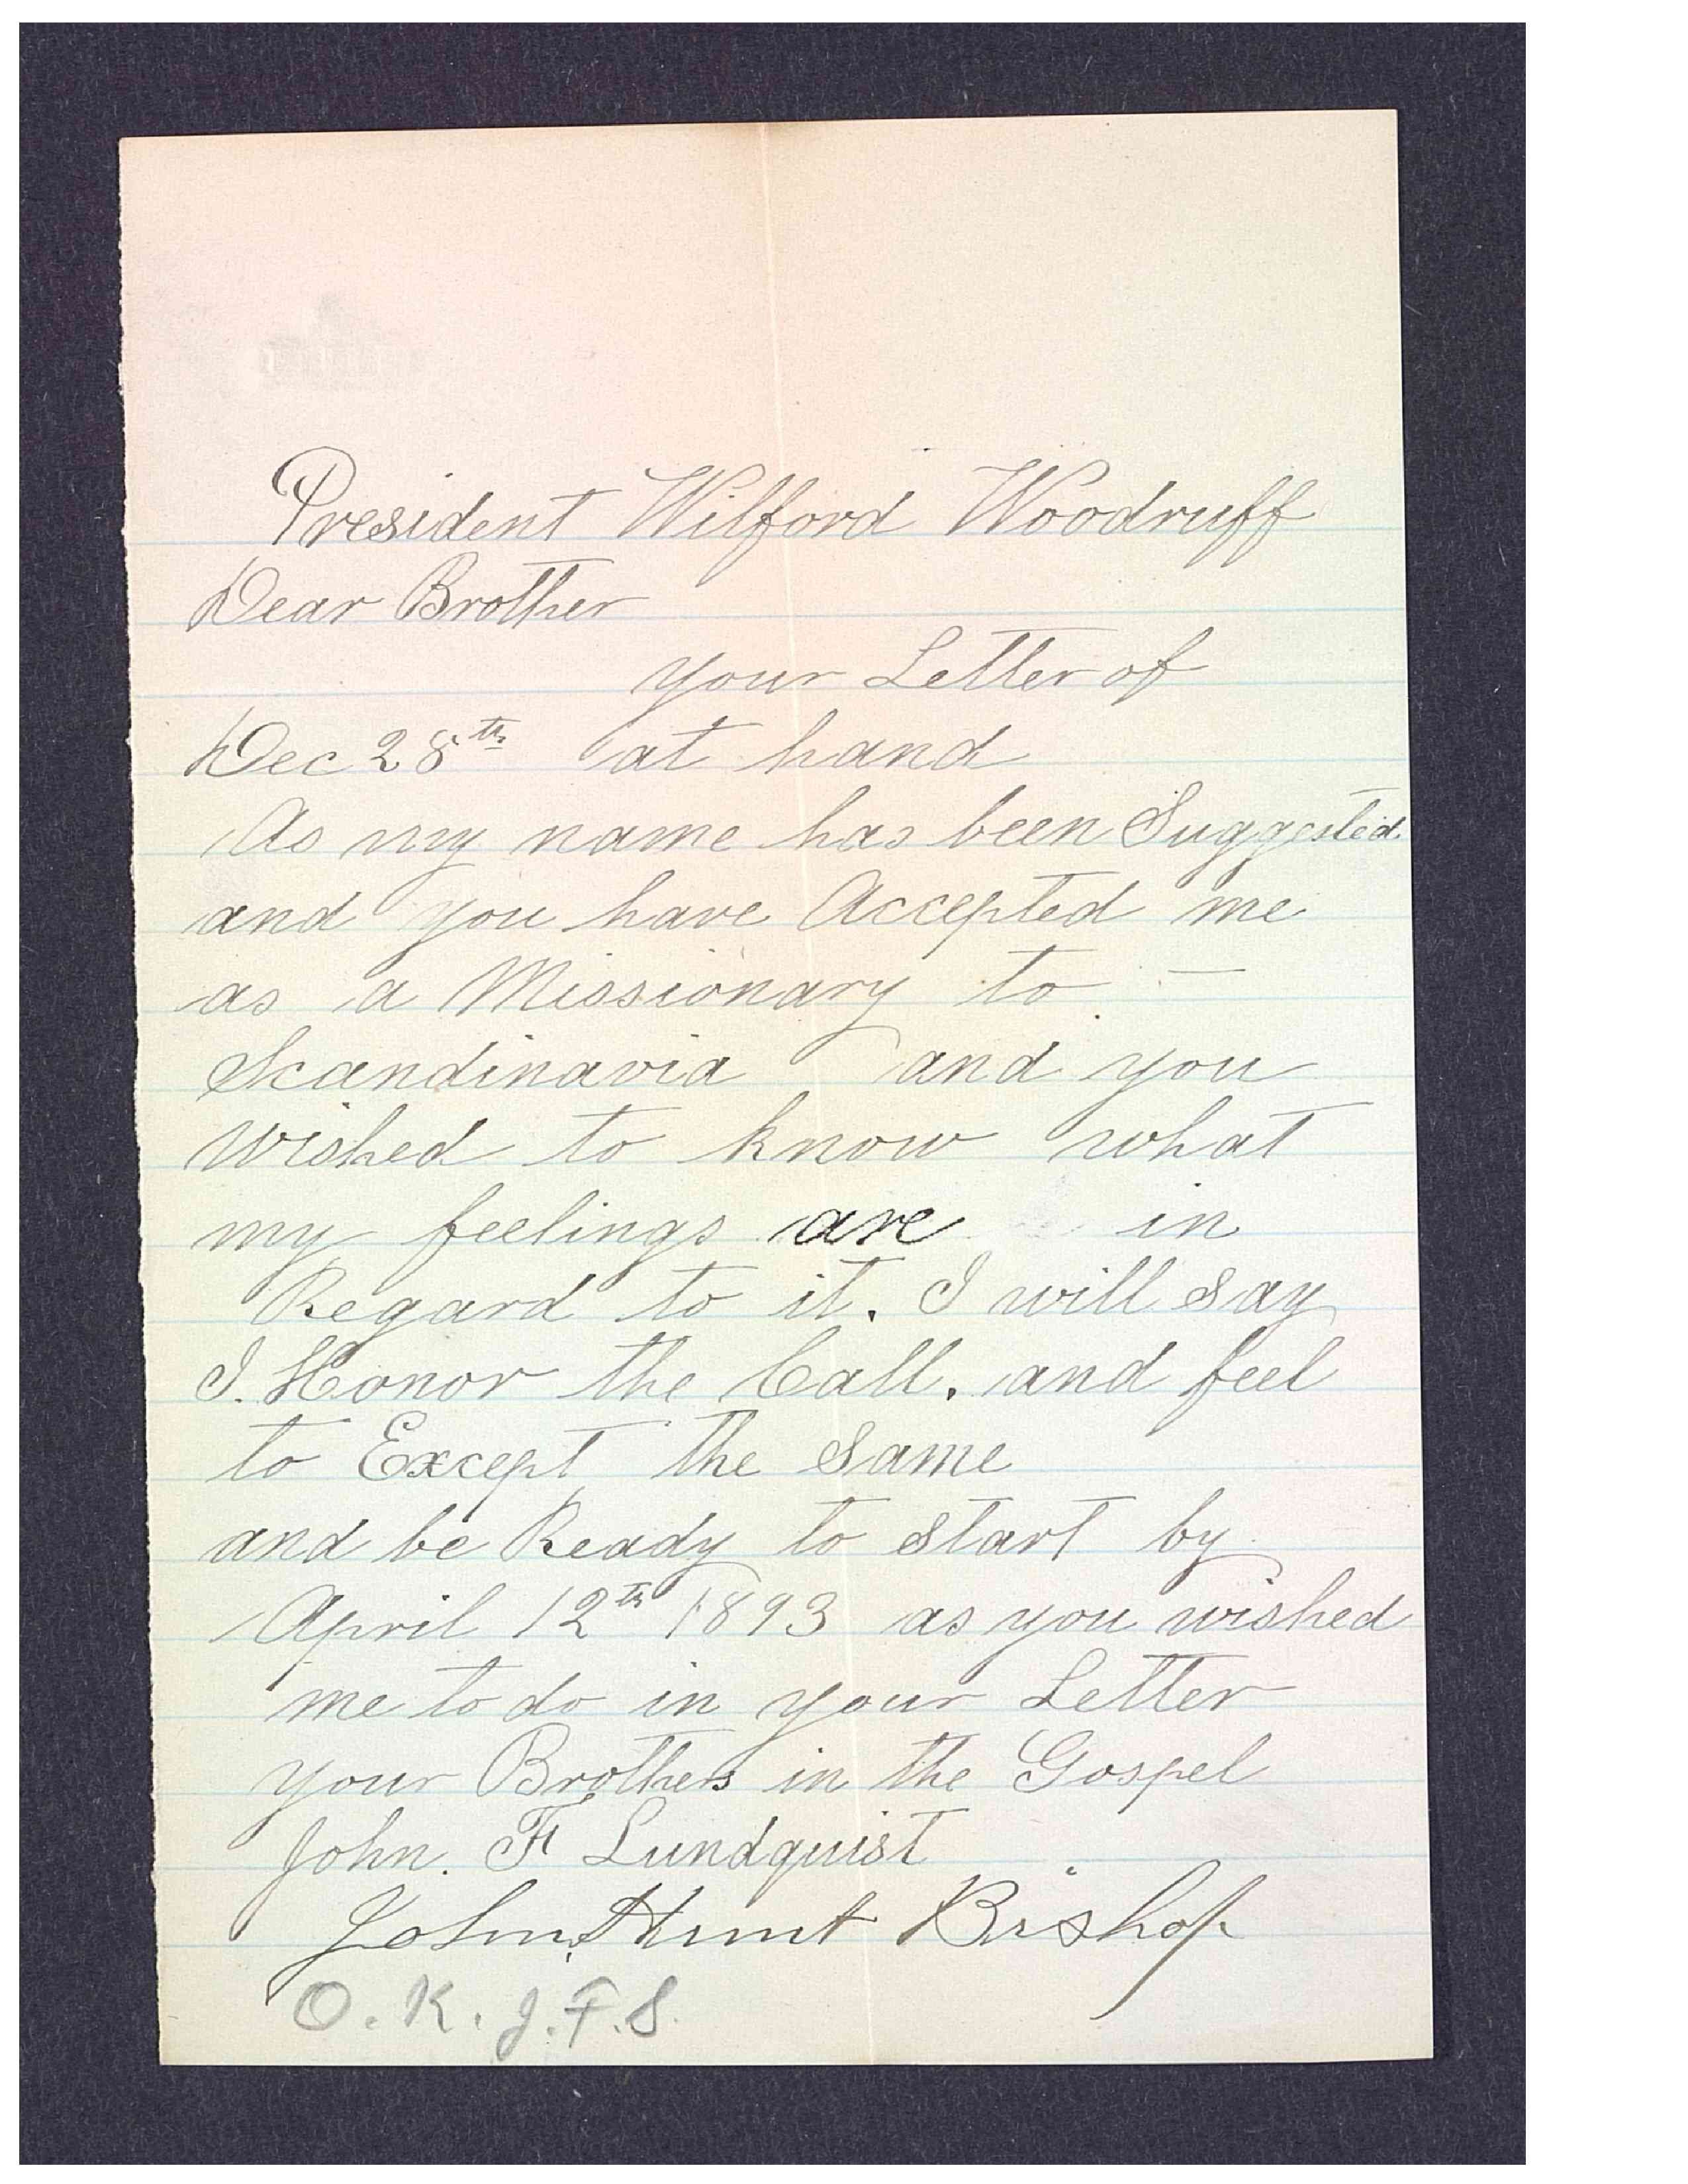 President Wilford Woodruff
Dear Brother
your Letter of
Dec 28th at hand
As my name has been Suggested
and you have Accepted me
as a Missionary to —
Scandinavia and you
wished to know what
my feelings are in
Regard to it. I will say
I. Honor the Call. and feel
to Except the Same
and be Ready to start by
April 12th 1893 as you wished
me to do in your Letter
your Brother in the Gospel
John. F Lundquist
John Hunt Bishop
O. K. J. F. S.